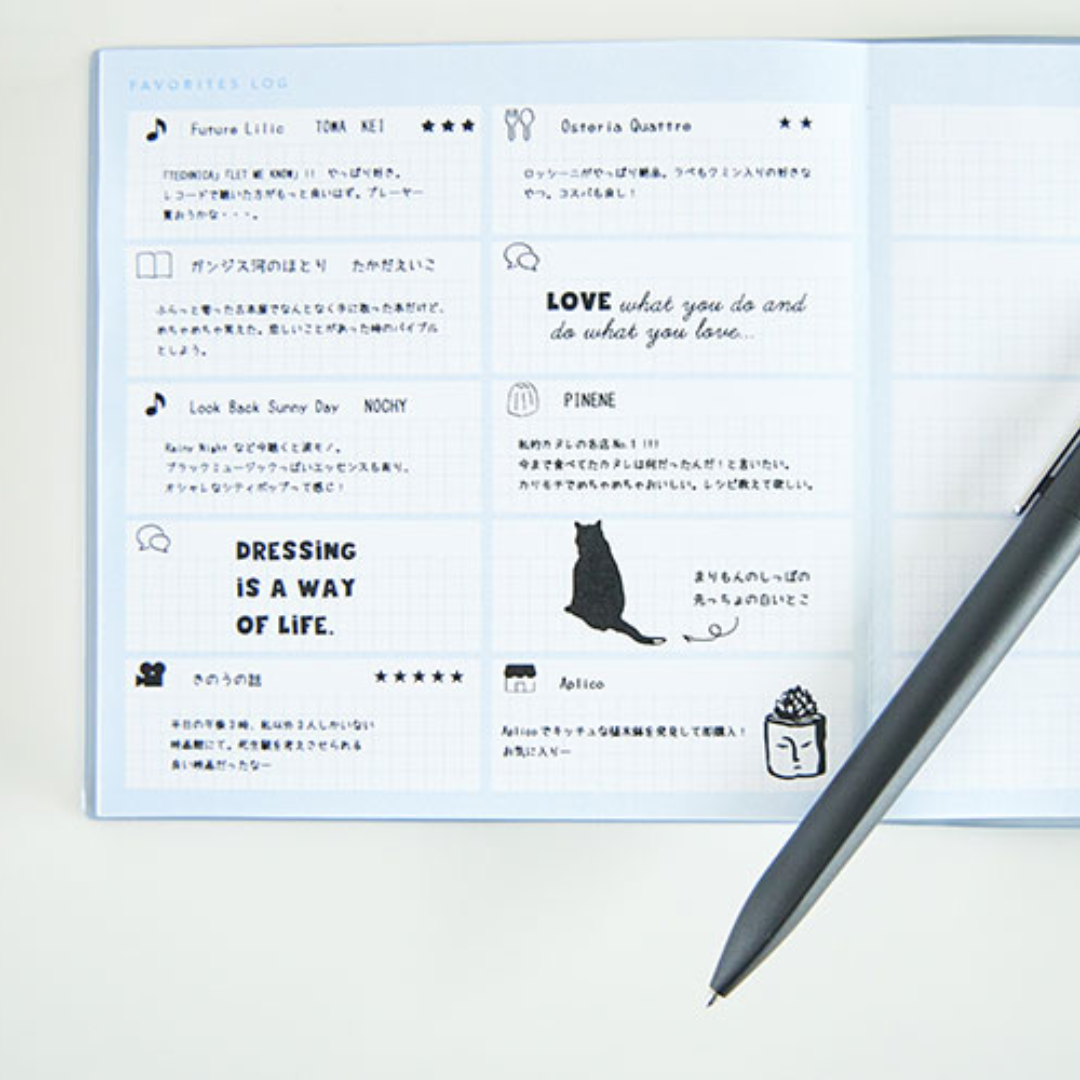 FAVORITES LOG
Future Lilic TOWA KEI ★★★
「TECHNICA」「LET ME KNOW」!! やっぱり好き。
レコードで聴いた方がもっと良いはず。プレーヤー
買おうかな・・・。
ガンジス河のほとり たかだえいこ
ふらっと寄った古本屋でなんとなく手に取った本だけど、
めちゃめちゃ笑えた。悲しいことがあった時のバイブル
としよう。
Look Back Sunny Day NOCHY
Rainy Night など今聴くと涙モノ。
ブラックミュージックっぽいエッセンスも有り、
オシャレなシティポップって感じ!
DRESSING
IS A WAY
OF LIFE.
きのうの話 ★★★★★
平日の午後3時、私以外2人しかいない
映画館にて。死生観を考えさせられる
良い映画だったなー
Osteria Quattro ★★
ロッシーニがやっぱり絶品。ラペもクミン入りの好きな
やつ。コスパも良し!
LOVE what you do and
do what you love...
PINENE
私的カヌレの名店No.1 !!!
今まで食べてたカヌレは何だったんだ!と言いたい。
カリモチでめちゃめちゃおいしい。レシピ教えて欲しい。
まりもんのしっぽの
先っちょの白いとこ
Aplico
Aplicoでキッチュな植木鉢を発見して即購入!
お気に入りー